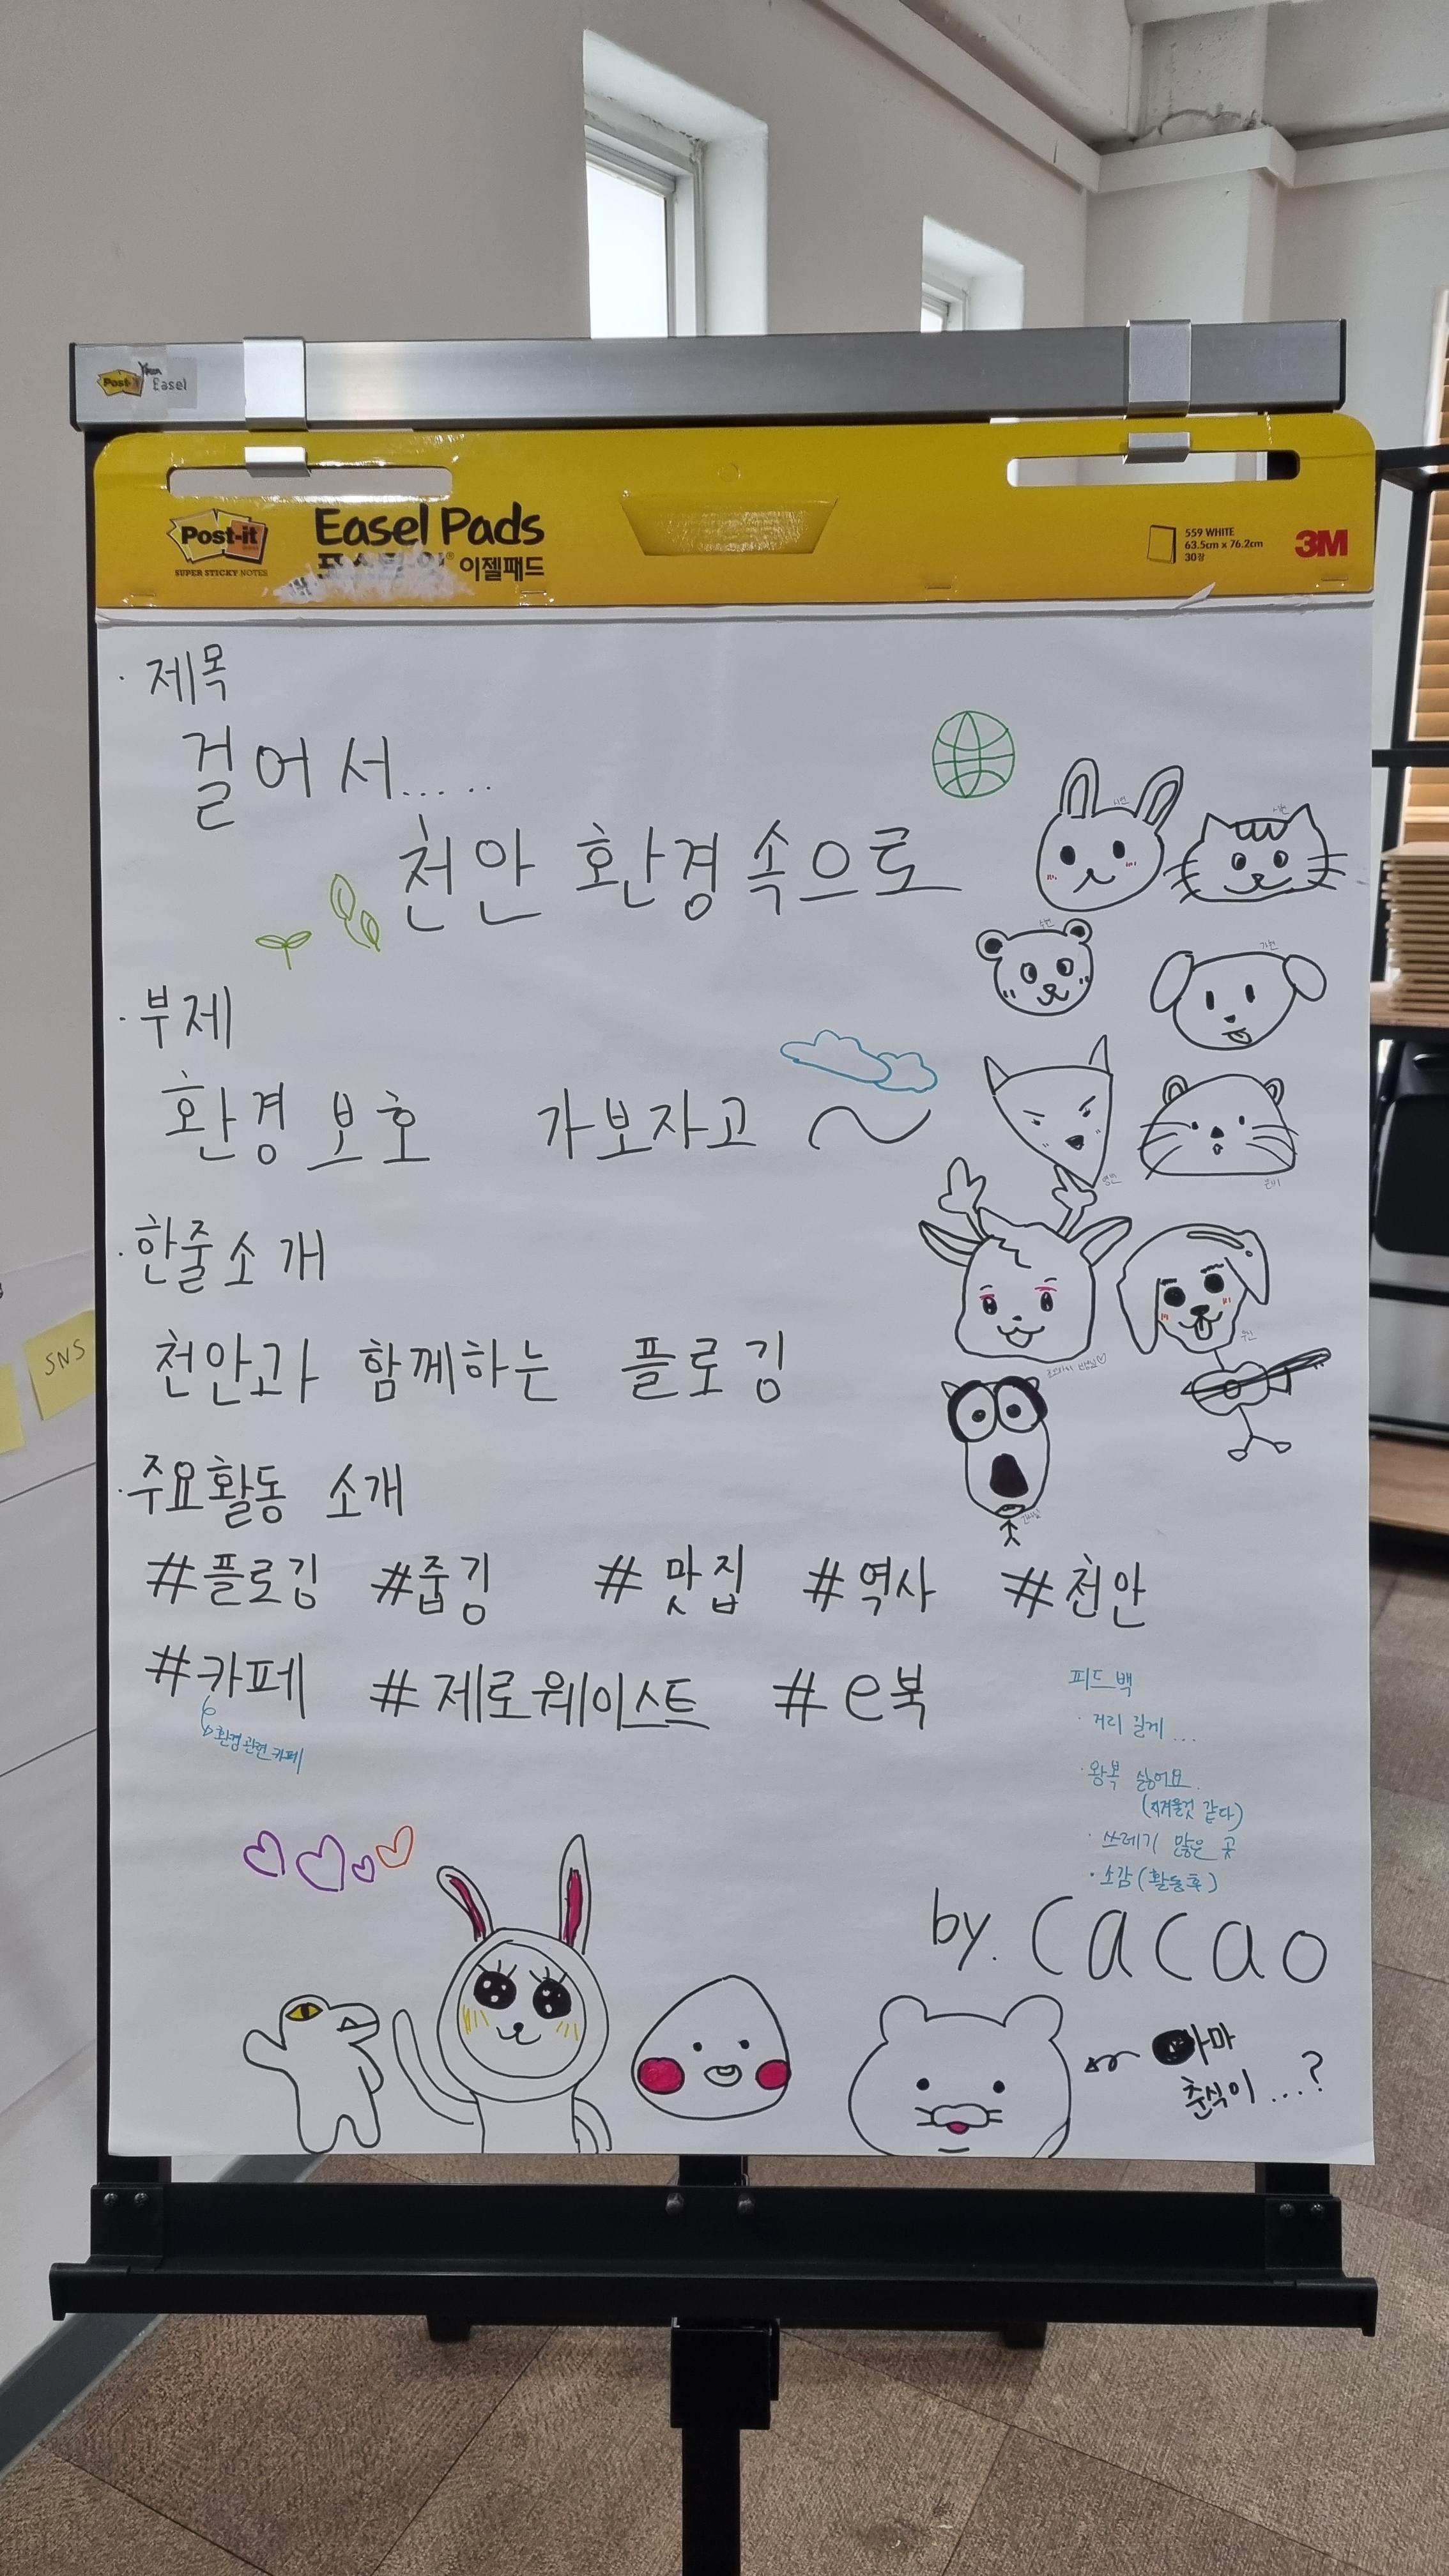 Post-it Easel
Post-it
SUPER STICKY NOTES
Easel Pads
이젤패드
559 WHITE
63.5cm x 76.2cm
30장
3M
· 제목
걸어서.....
천안 환경속으로
· 부제
환경 보호 가보자고 ~
· 한줄소개
천안과 함께하는 플로깅
· 주요활동 소개
#플로깅 #줍깅 #맛집 #역사 #천안
#카페 #제로웨이스트 #e북
환경 관련 카페
피드백
· 거리 길게...
· 왕복 싫어요.
(지겨울것 같다)
· 쓰레기 많은 곳
· 소감(활동후)
by. cacao
아마
춘식이...?
SNS